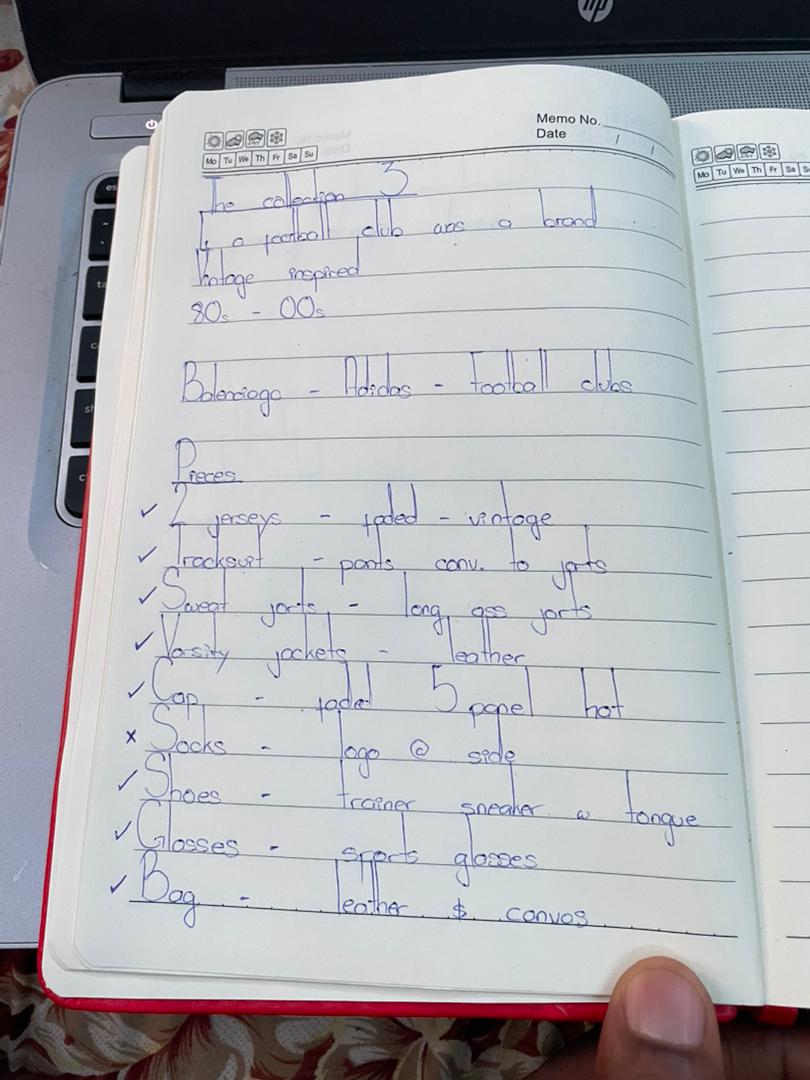 hp
Memo No.
Date / /
Mo Tu We Th Fr Sa Su
The collection 3
If a football club was a brand
Vintage inspired
80s - 00s
Balenciaga - Adidas - Football clubs
Pieces
✓ 2 jerseys - faded - vintage
✓ Tracksuit - pants conv. to jorts
✓ Sweat jorts - long ass jorts
✓ Varsity jackets - leather
✓ Cap - faded 5 panel hat
x Socks - logo @ side
✓ Shoes - trainer sneaker w tongue
✓ Glasses - sports glasses
✓ Bag - leather $ canvas
Mo Tu We Th Fr Sa